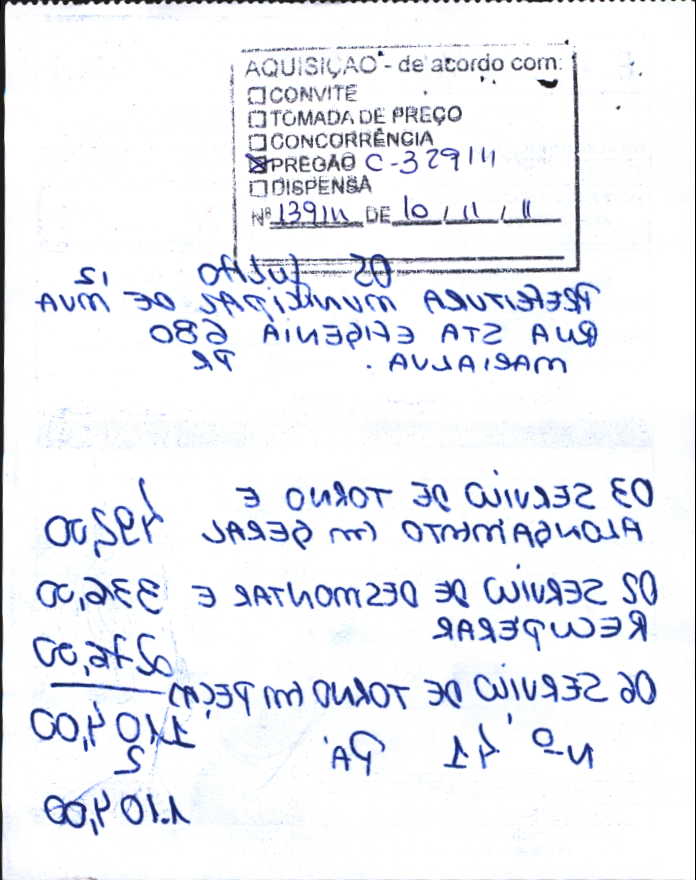 AQUISIÇÃO - de acordo com:
☐ CONVITE
☐ TOMADA DE PREÇO
☐ CONCORRÊNCIA
☒ PREGÃO C-329/11
☐ DISPENSA
Nº 139/11 DE 10 / 11 / 11
05 JULHO 12
PREFEITURA MUNICIPAL DE MVA
RUA STA EFIGENIA 680
MARIALVA. PR
03 SERVIÇO DE TORNO E
ALONGAMENTO EM GERAL 492,00
02 SERVIÇO DE DESMONTAR E 336,00
RECUPERAR
276,00
06 SERVIÇO DE TORNO EM PEÇAS
1.104,00
Nº 41 PÁ 2
1.104,00